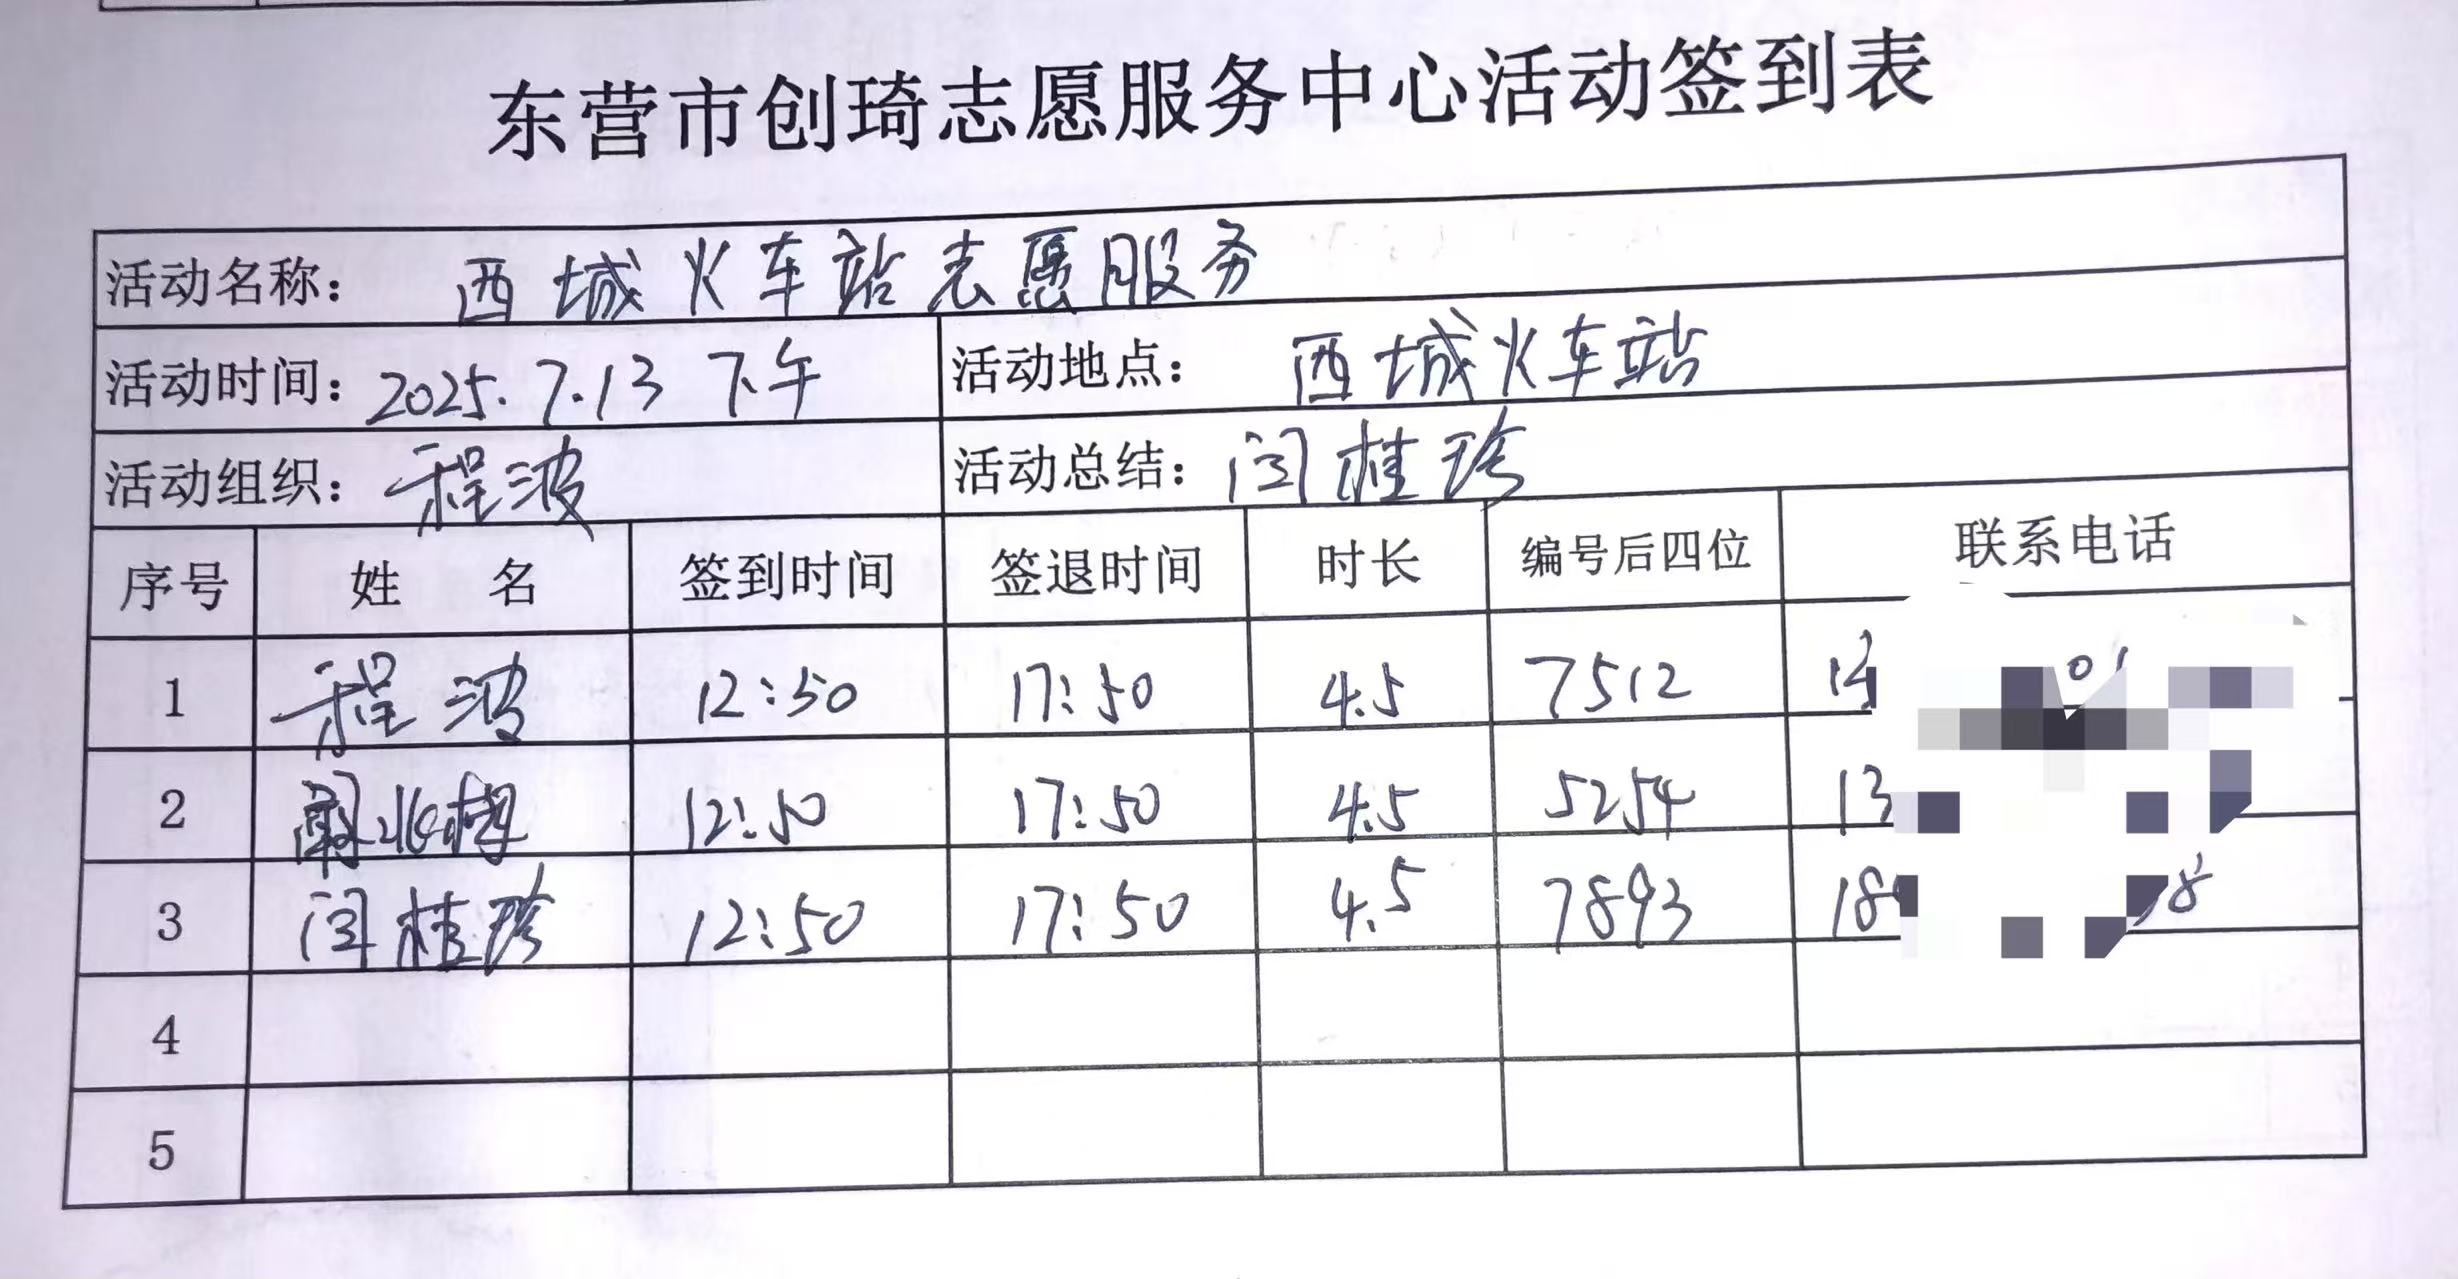 东营市创琦志愿服务中心活动签到表
活动名称： 西城火车站志愿服务
活动时间：2025.7.13 下午 活动地点： 西城火车站
活动组织：程波 活动总结：闫桂珍
序号 姓 名 签到时间 签退时间 时长 编号后四位 联系电话
1 程波 12:50 17:50 4.5 7512
2 12:50 17:50 4.5 5254 13
3 闫桂珍 12:50 17:50 4.5 7893 18
4
5